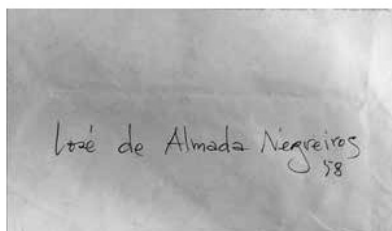 José de Almada Negreiros
58